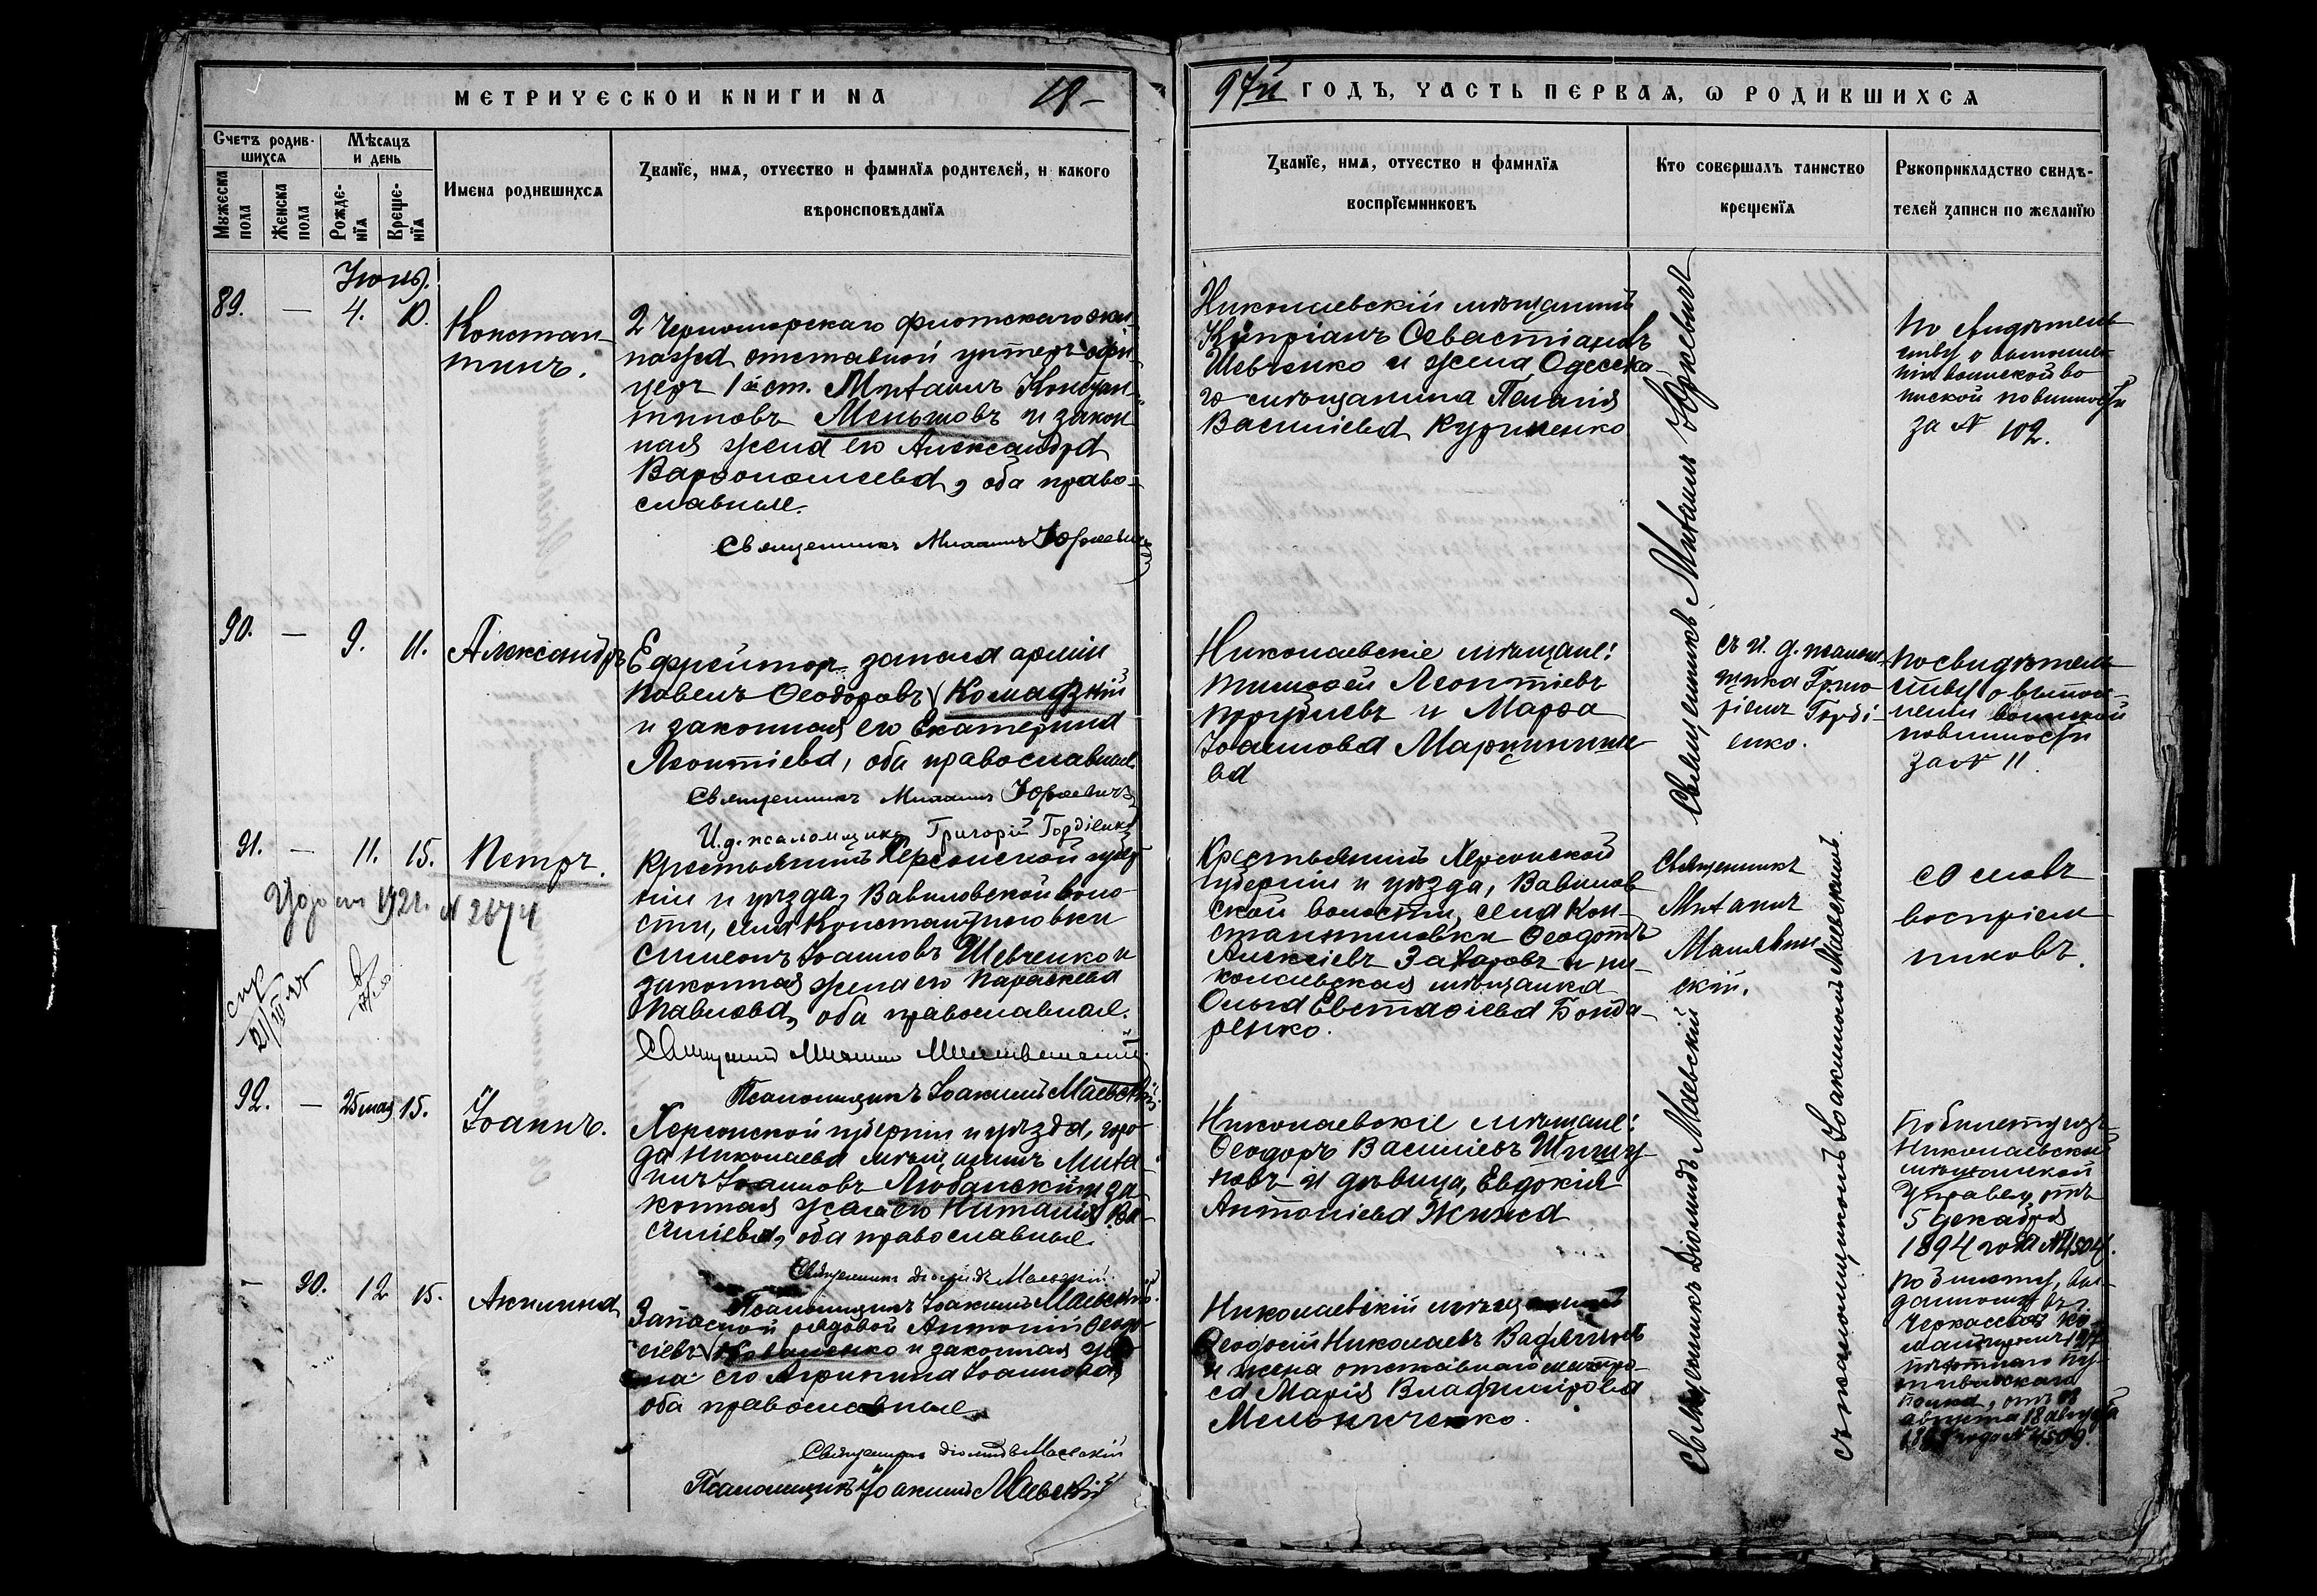 МЕТРИЧЕСКОЙ КНИГИ НА 18-
97й ГОДЪ, ЧАСТЬ ПЕРВАЯ, Ѡ РОДИВШИХСЯ
Счетъ родив-
шихся
Мужеска
пола
Женска
пола
Мѣсяцъ
и день
Рожде-
нїя
Креще-
нїя
Имена родившихся
Званїе, имя, отчество и фамилїя родителей, и какого
вѣроисповѣданїя
Званїе, имя, отчество и фамилїя
воспрїемниковъ
Кто совершалъ таинство
крещенїя
Рукоприкладство свидѣ-
телей записи по желанїю
Іюнь.
89. — 4. 10.
Констан-
тинъ.
2 Черноморскаго флотскаго эки-
пажа отставной унтеръ офи-
церъ 1й ст. Михаилъ Констан-
тиновъ Меньшовъ и закон-
ная жена его Александра
Варфоломеева, оба право-
славные.
Священникъ Михаилъ Юркевичъ
Николаевскій мѣщанинъ
Кипріанъ Севастіановъ
Шевченко и жена Одесска-
го мѣщанина Пелагія
Васильева Куриленко
Священникъ Михаилъ Юркевичъ
По свидѣтель-
ству о выполне-
ніи воинской
повинности
за № 102.
90. — 9. 11. Александръ
Ефрейторъ запаса арміи
Павелъ Ѳеодоровъ Комадзкій
и законная его Екатерина
Леонтіева, оба православные.
Священникъ Михаилъ Юркевичъ
И. д. псаломщика Григорій Гордіенко
Николаевскіе мѣщане:
Тимоѳей Леонтіевъ
и Марѳа
Іоаннова
ва
съ и. д. псалом-
щика Григо-
ріемъ Горді-
енко.
По свидѣтель-
ству о выпол-
неніи воинской
повинности
за № 11
91. — 11. 15. Петръ.
1921. № 2674
Крестьянинъ Херсонской губер-
ніи и уѣзда, Вавиловской воло-
сти, села Константиновки
Симеонъ Іоанновъ Шевченко и
законная жена его Параскева
Павлова, оба православные.
Псаломщикъ Іоакимъ Маевскій
Крестьянинъ Херсонской
губерніи и уѣзда, Вавилов-
ской волости, села Кон-
стантиновки Ѳеодотъ
Алексіевъ Захаровъ и ни-
колаевская мѣщанка
Ольга Евстафіева Бонда-
ренко.
Священникъ
Михаилъ
со словъ
воспріем-
никовъ.
92. — 25 мая 15. Іоаннъ.
Херсонской губерніи и уѣзда, горо-
да Николаева мѣщанинъ Миха-
илъ Іоанновъ Любанскій и за-
конная жена его Наталія Ва-
силіева, оба православные.
Священникъ Діомидъ Маевскій
Псаломщикъ Іоакимъ Маевскій.
Николаевскіе мѣщане:
Ѳеодоръ Василіевъ Шишу-
новъ и дѣвица, Евдокія
Антоніева
Священникъ Діомидъ Маевскій
съ псаломщикомъ Іоакимомъ Маевскимъ
По билету изъ
Николаевской
мѣщанской
Управы, отъ
5 декабря
1894 года №4504.
— 30. 12 15. Акилина
Запасной рядовой Антоній Ѳеодо-
сіевъ Коваленко и законная же-
на его Агрипина Іоаннова,
оба православные
Священникъ Діомидъ Маевскій
Псаломщикъ Іоакимъ Маевскій
Николаевскій мѣщанинъ
Ѳеодосій Николаевъ
и жена отставнаго матро-
са Марія Владимірова
Мельниченко.
По билету, вы-
данному въ г.
Черкассахъ ко-